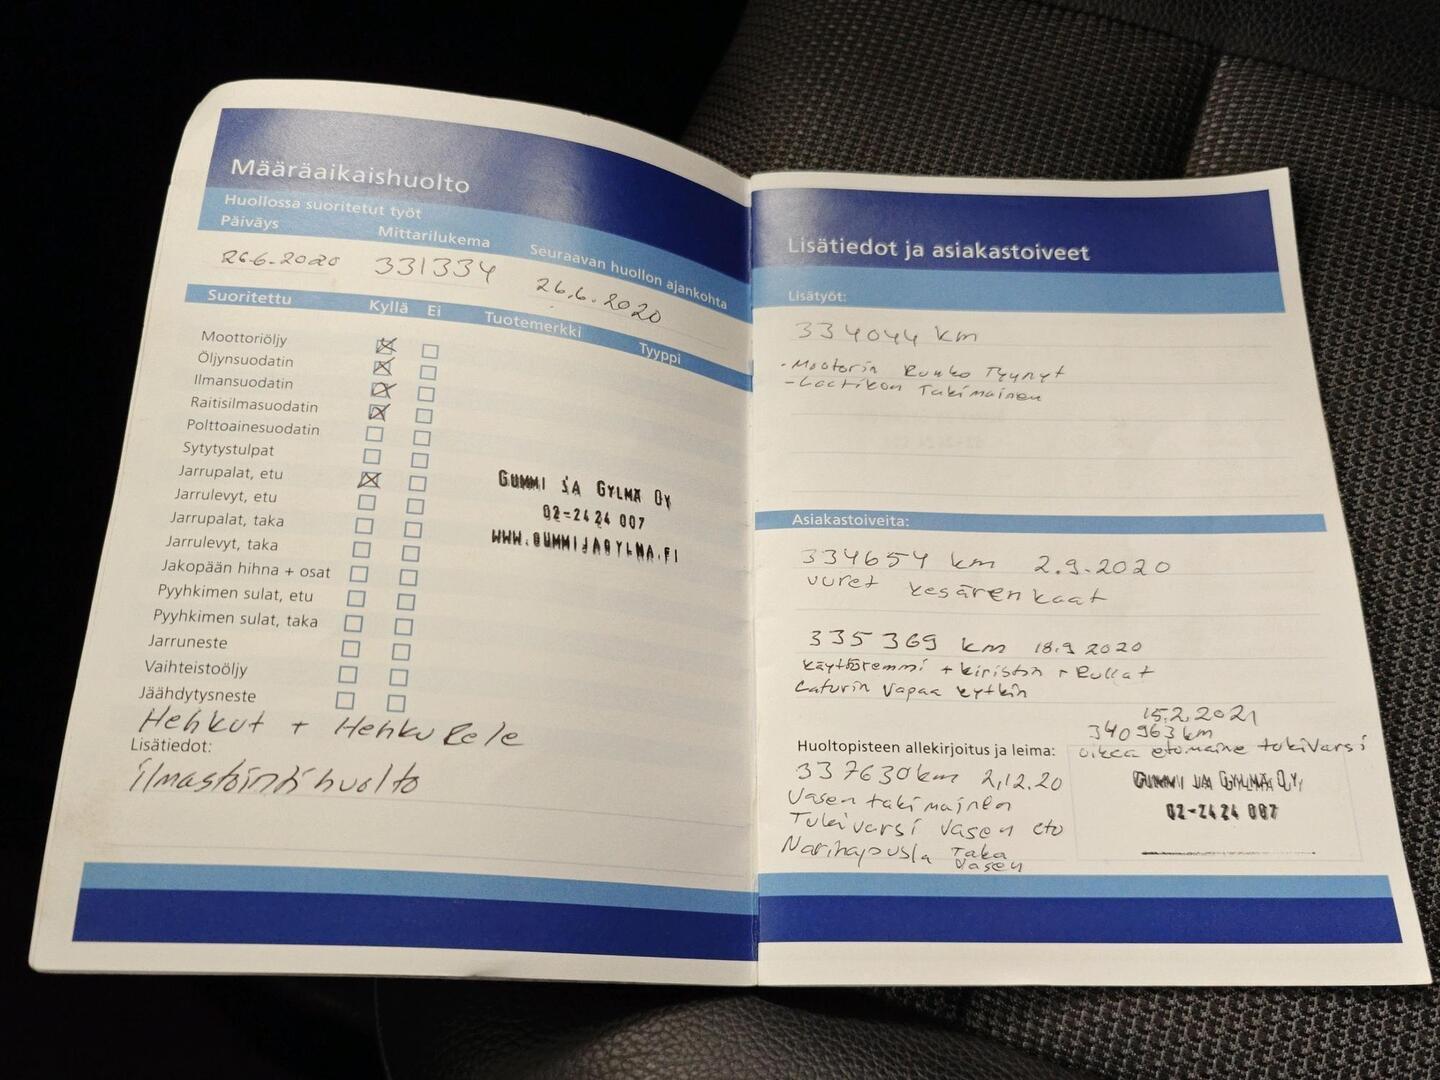 Määräaikaishuolto
Huollossa suoritetut työt
Päiväys Mittarilukema Seuraavan huollon ajankohta
26.6.2020 331334 26.6.2020
Suoritettu Kyllä Ei Tuotemerkki Tyyppi
Moottoriöljy
Öljynsuodatin
Ilmansuodatin
Raitisilmasuodatin
Polttoainesuodatin
Sytytystulpat
Jarrupalat, etu
Jarrulevyt, etu
Jarrupalat, taka
Jarrulevyt, taka
Jakopään hihna + osat
Pyyhkimen sulat, etu
Pyyhkimen sulat, taka
Jarruneste
Vaihteistoöljy
Jäähdytysneste
GUMMI JA GYLMÄ OY
02-2424 007
WWW.GUMMIJAGYLMA.FI
Hehkut + Hehku Rele
Lisätiedot:
ilmastointihuolto
Lisätiedot ja asiakastoiveet
Lisätyöt:
334044 km
- Moottorin Runko Tyynyt
- Laatikon Takimainen
Asiakastoiveita:
334654 km 2.9.2020
vuret kesärenkaat
335369 km 18.9 2020
käyttöremmi + kiristin + Rullat
Laturin vapaa kytkin
15.2.2021
340963 km
oikea etumaine tukivarsi
Huoltopisteen allekirjoitus ja leima:
337630km 2,12.20
Vasen takimainen
Tukivarsi vasen etu
Narihapusla Taka
Vasen
GUMMI JA GYLMÄ OY,
02-2424 007